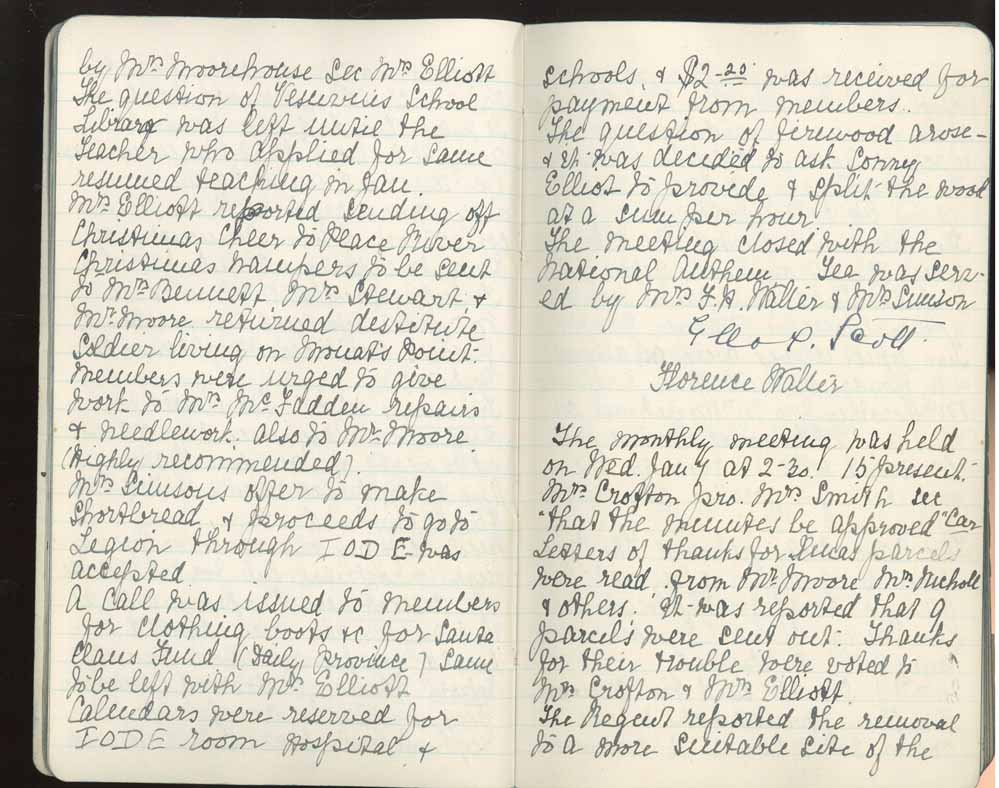 by Mrs Moorehouse Sec Mrs Elliott
The question of Vesuvius School
Library was left until the
Teacher who applied for same
resumed teaching in Jan.
Mrs Elliott reported sending off
Christmas Cheer to Peace River
Christmas hampers to be sent
to Mrs Bennett Mrs Stewart, &
Mr Moore returned destitute
Soldier living on Mouat's Point.
Members were urged to give
work to Mrs McFadden repairs
& needlework. also to Mr Moore
(Highly recommended).
Mrs Simsons offer to make
Shortbread & proceeds to go to
Legion through I O D E was
accepted
A call was issued to members
for clothing boots &c for Santa
Claus Fund (Daily Province) Same
to be left with Mrs Elliott
Calendars were reserved for
I O D E room Hospital, &
schools, & $2-20 was received for
payment from members.
The question of firewood arose-
& it was decided to ask Sonny
Elliot to provide & split the wood
at a sum per hour
The meeting closed with the
National Anthem Tea was serv-
ed by Mrs F. H. Walter & Mrs Simson
C. Scott.
Florence Walter
The monthly meeting was held
on Wed. Jan 7 at 2-30. 15 present.
Mrs Crofton pro. Mrs Smith sec
"that the minutes be approved" Car
Letters of thanks for Xmas parcels
were read, from Mr Moore Mrs Nicholl
& others. It was reported that 9
parcels were sent out. Thanks
for their trouble were voted to
Mrs Crofton & Mrs Elliott.
The Regent reported the removal
to a more suitable site of the